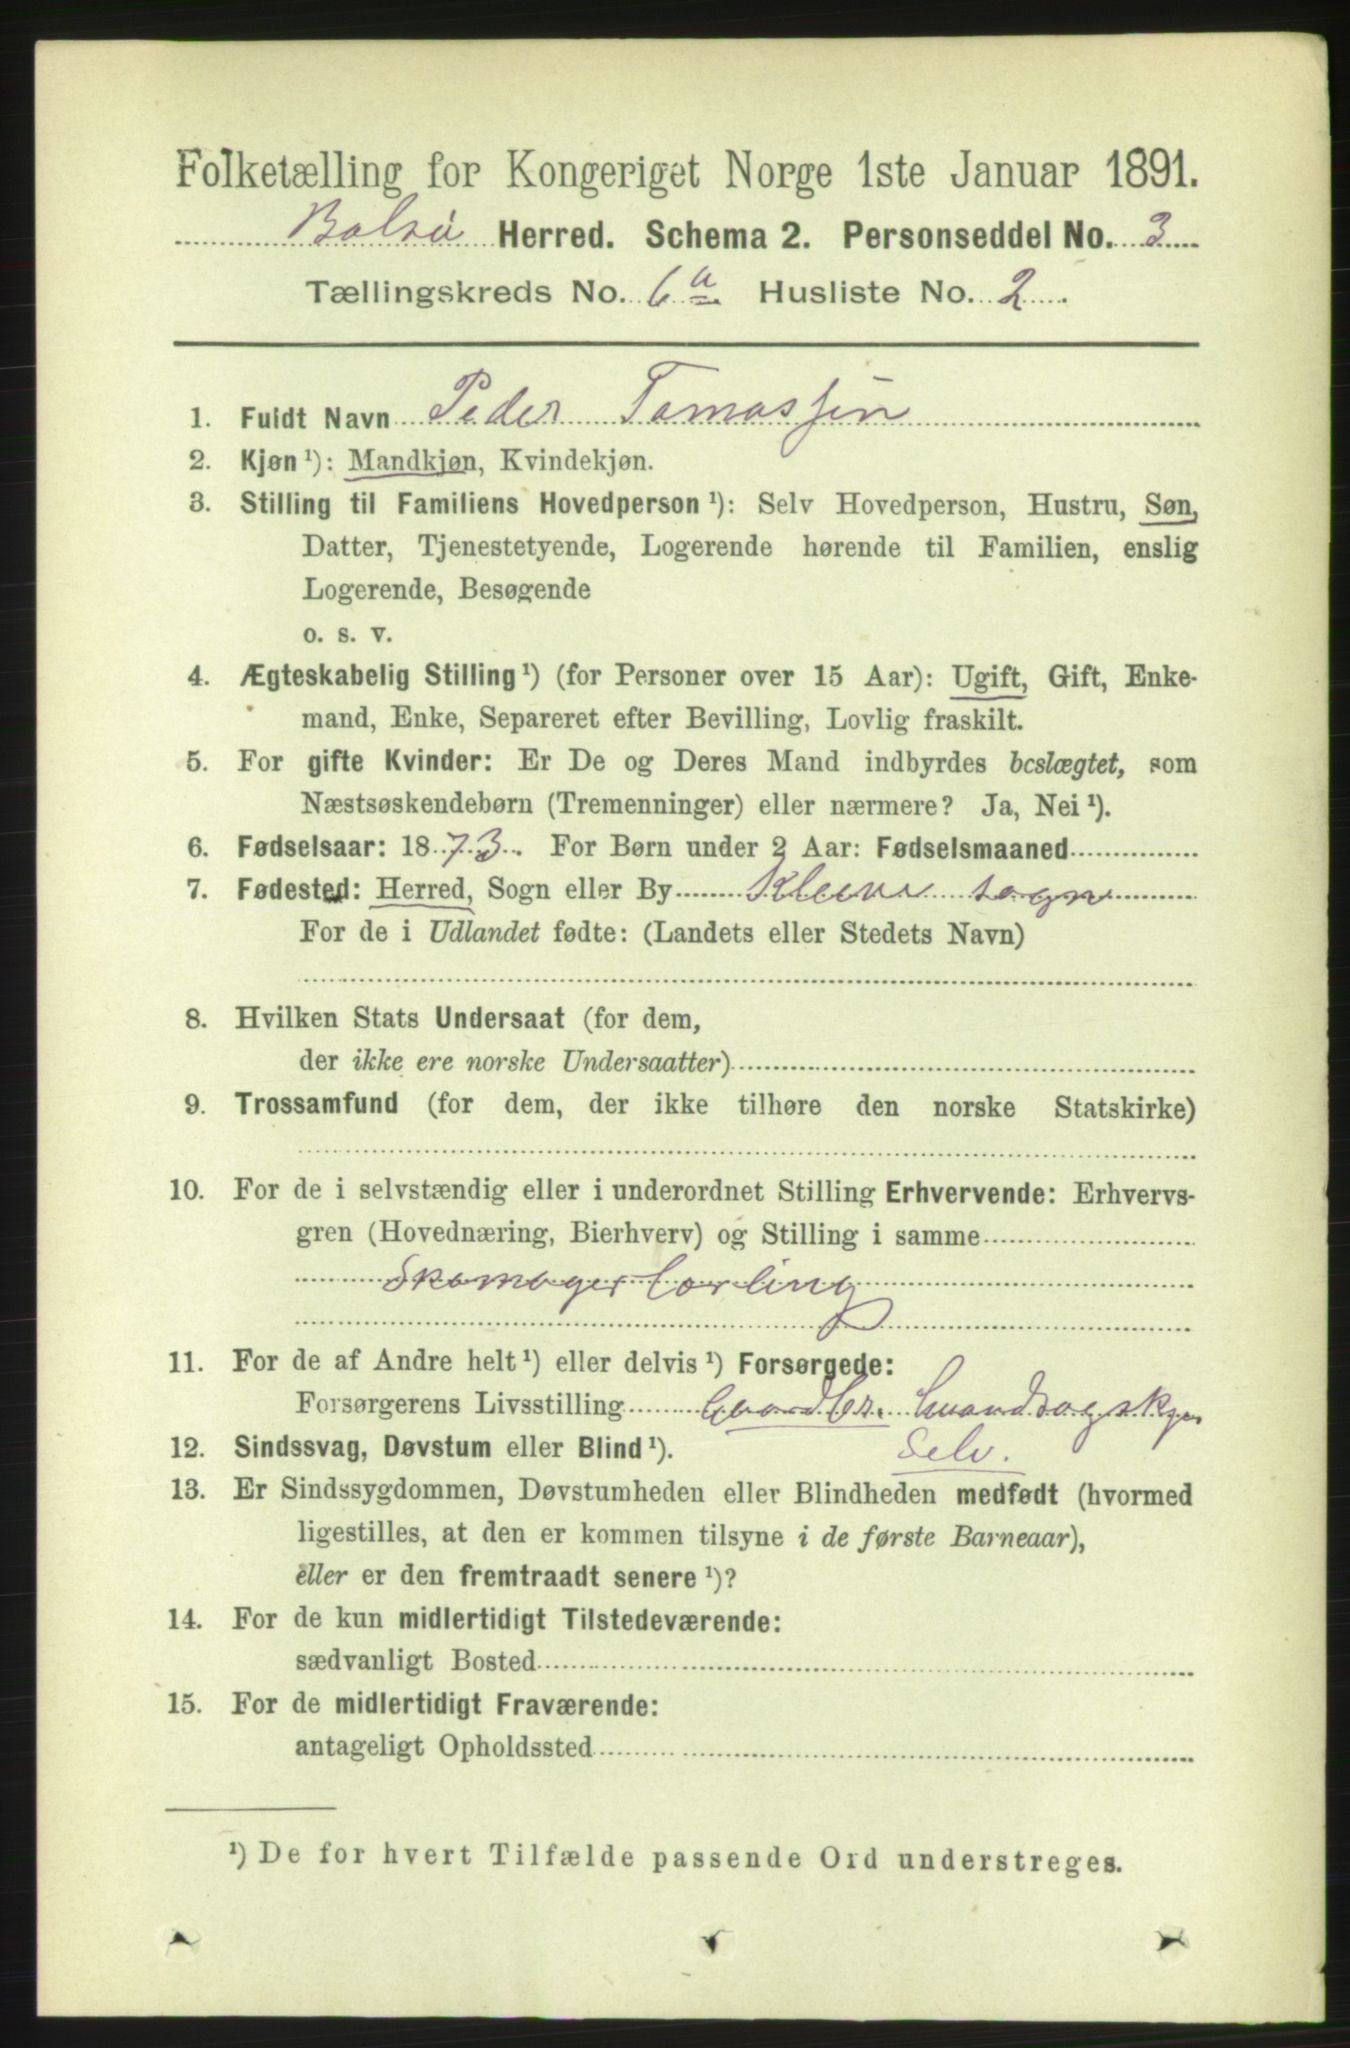 Folketælling for Kongeriget Norge 1ste Januar 1891.
Bolsø Herred. Schema 2. Personseddel No. 3
Tællingskreds No. 6 a Husliste No. 2
1. Fuldt Navn Peder Tomassen
2. Kjøn ¹): Mandkjøn, Kvindekjøn.
3. Stilling til Familiens Hovedperson ¹): Selv Hovedperson, Hustru, Søn,
Datter, Tjenestetyende, Logerende hørende til Familien, enslig
Logerende, Besøgende
o. s. v.
4. Ægteskabelig Stilling ¹) (for Personer over 15 Aar): Ugift, Gift, Enke-
mand, Enke, Separeret efter Bevilling, Lovlig fraskilt.
5. For gifte Kvinder: Er De og Deres Mand indbyrdes beslægtet, som
Næstsøskendebørn (Tremenninger) eller nærmere? Ja, Nei ¹).
6. Fødselsaar: 1873. For Børn under 2 Aar: Fødselsmaaned
7. Fødested: Herred, Sogn eller By Kleive sogn
For de i Udlandet fødte: (Landets eller Stedets Navn)
8. Hvilken Stats Undersaat (for dem,
der ikke ere norske Undersaatter)
9. Trossamfund (for dem, der ikke tilhøre den norske Statskirke)
10. For de i selvstændig eller i underordnet Stilling Erhvervende: Erhvervs-
gren (Hovednæring, Bierhverv) og Stilling i samme
Skomagerlærling
11. For de af Andre helt ¹) eller delvis ¹) Forsørgede:
Forsørgerens Livsstilling Gaardbr.
12. Sindssvag, Døvstum eller Blind ¹). Selv.
13. Er Sindssygdommen, Døvstumheden eller Blindheden medfødt (hvormed
ligestilles, at den er kommen tilsyne i de første Barneaar),
eller er den fremtraadt senere ¹)?
14. For de kun midlertidigt Tilstedeværende:
sædvanligt Bosted
15. For de midlertidigt Fraværende:
antageligt Opholdssted
¹) De for hvert Tilfælde passende Ord understreges.